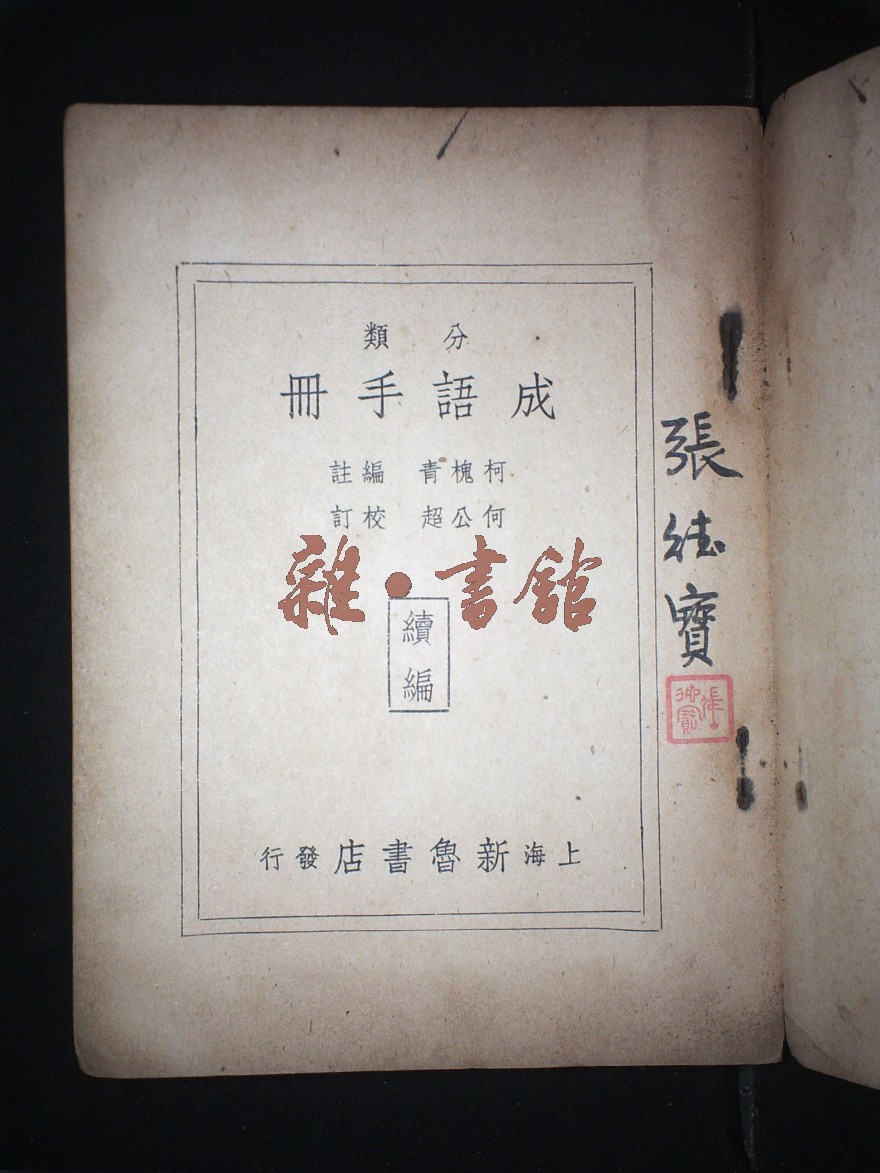 分類
成語手冊
柯槐青 編註
何公超 校訂
雜·書館
續編
上海新魯書店發行
張德寶